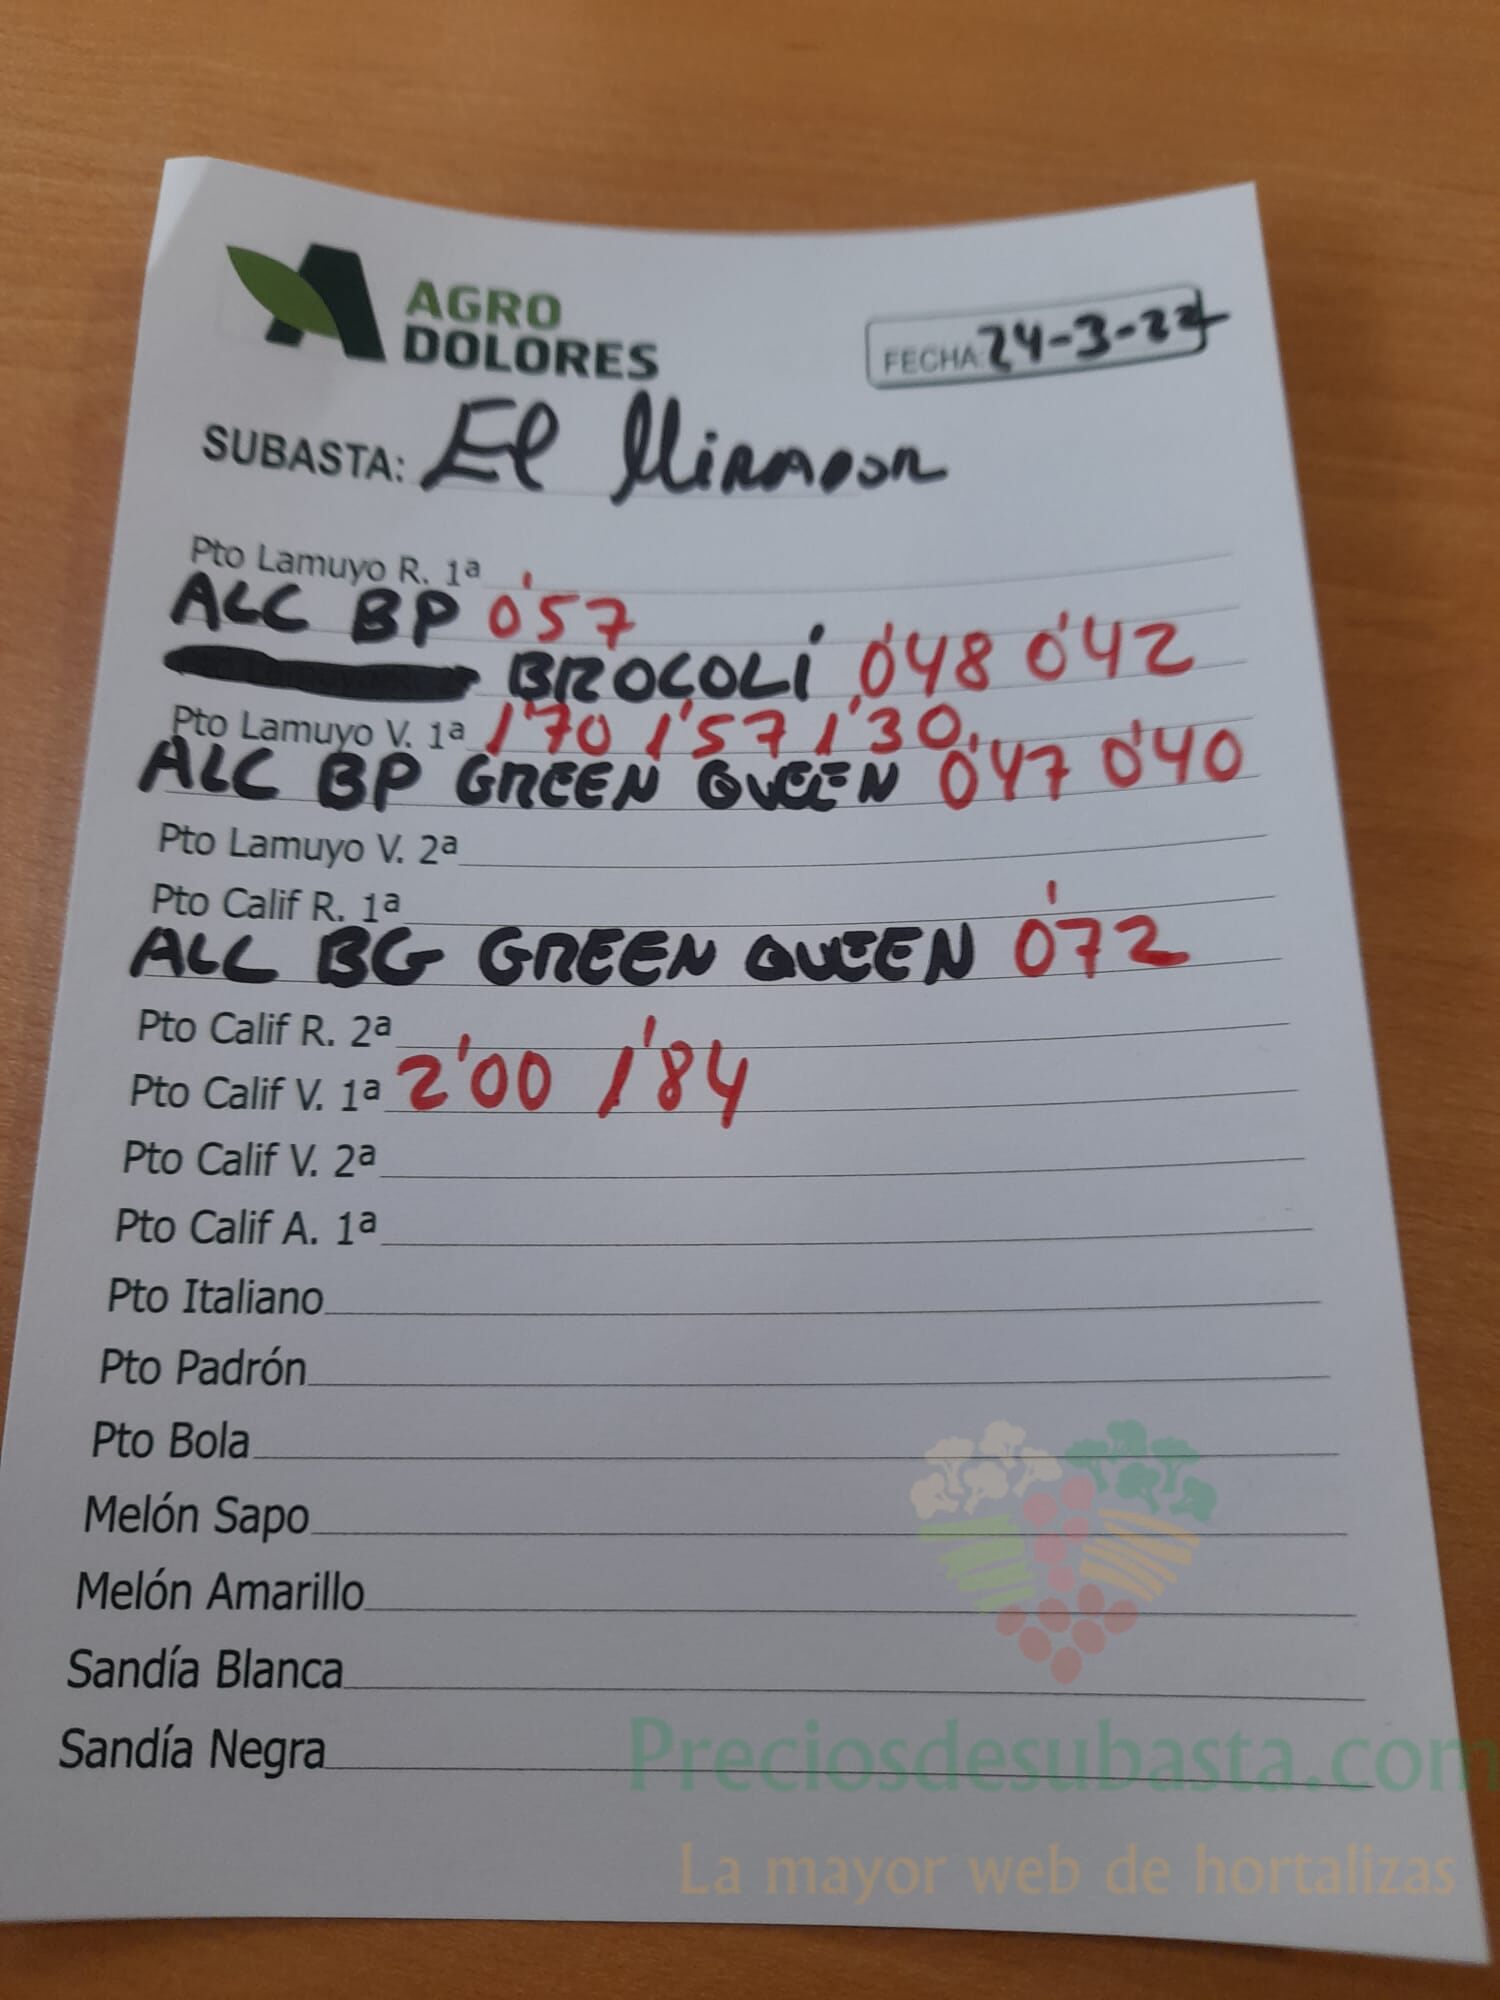 AGRO
DOLORES
FECHA: 24-3-22
SUBASTA: El Mirador
Pto Lamuyo R. 1ª
ALC BP 0'57
BROCOLI 0'48 0'42
Pto Lamuyo V. 1ª 1'70 1'57 1'30
ALC BP GREEN QUEEN 0'47 0'40
Pto Lamuyo V. 2ª
Pto Calif R. 1ª
ALC BG GREEN QUEEN 0'72
Pto Calif R. 2ª
Pto Calif V. 1ª 2'00 1'84
Pto Calif V. 2ª
Pto Calif A. 1ª
Pto Italiano
Pto Padrón
Pto Bola
Melón Sapo
Melón Amarillo
Sandía Blanca
Sandía Negra
Preciosdesubasta.com
La mayor web de hortalizas